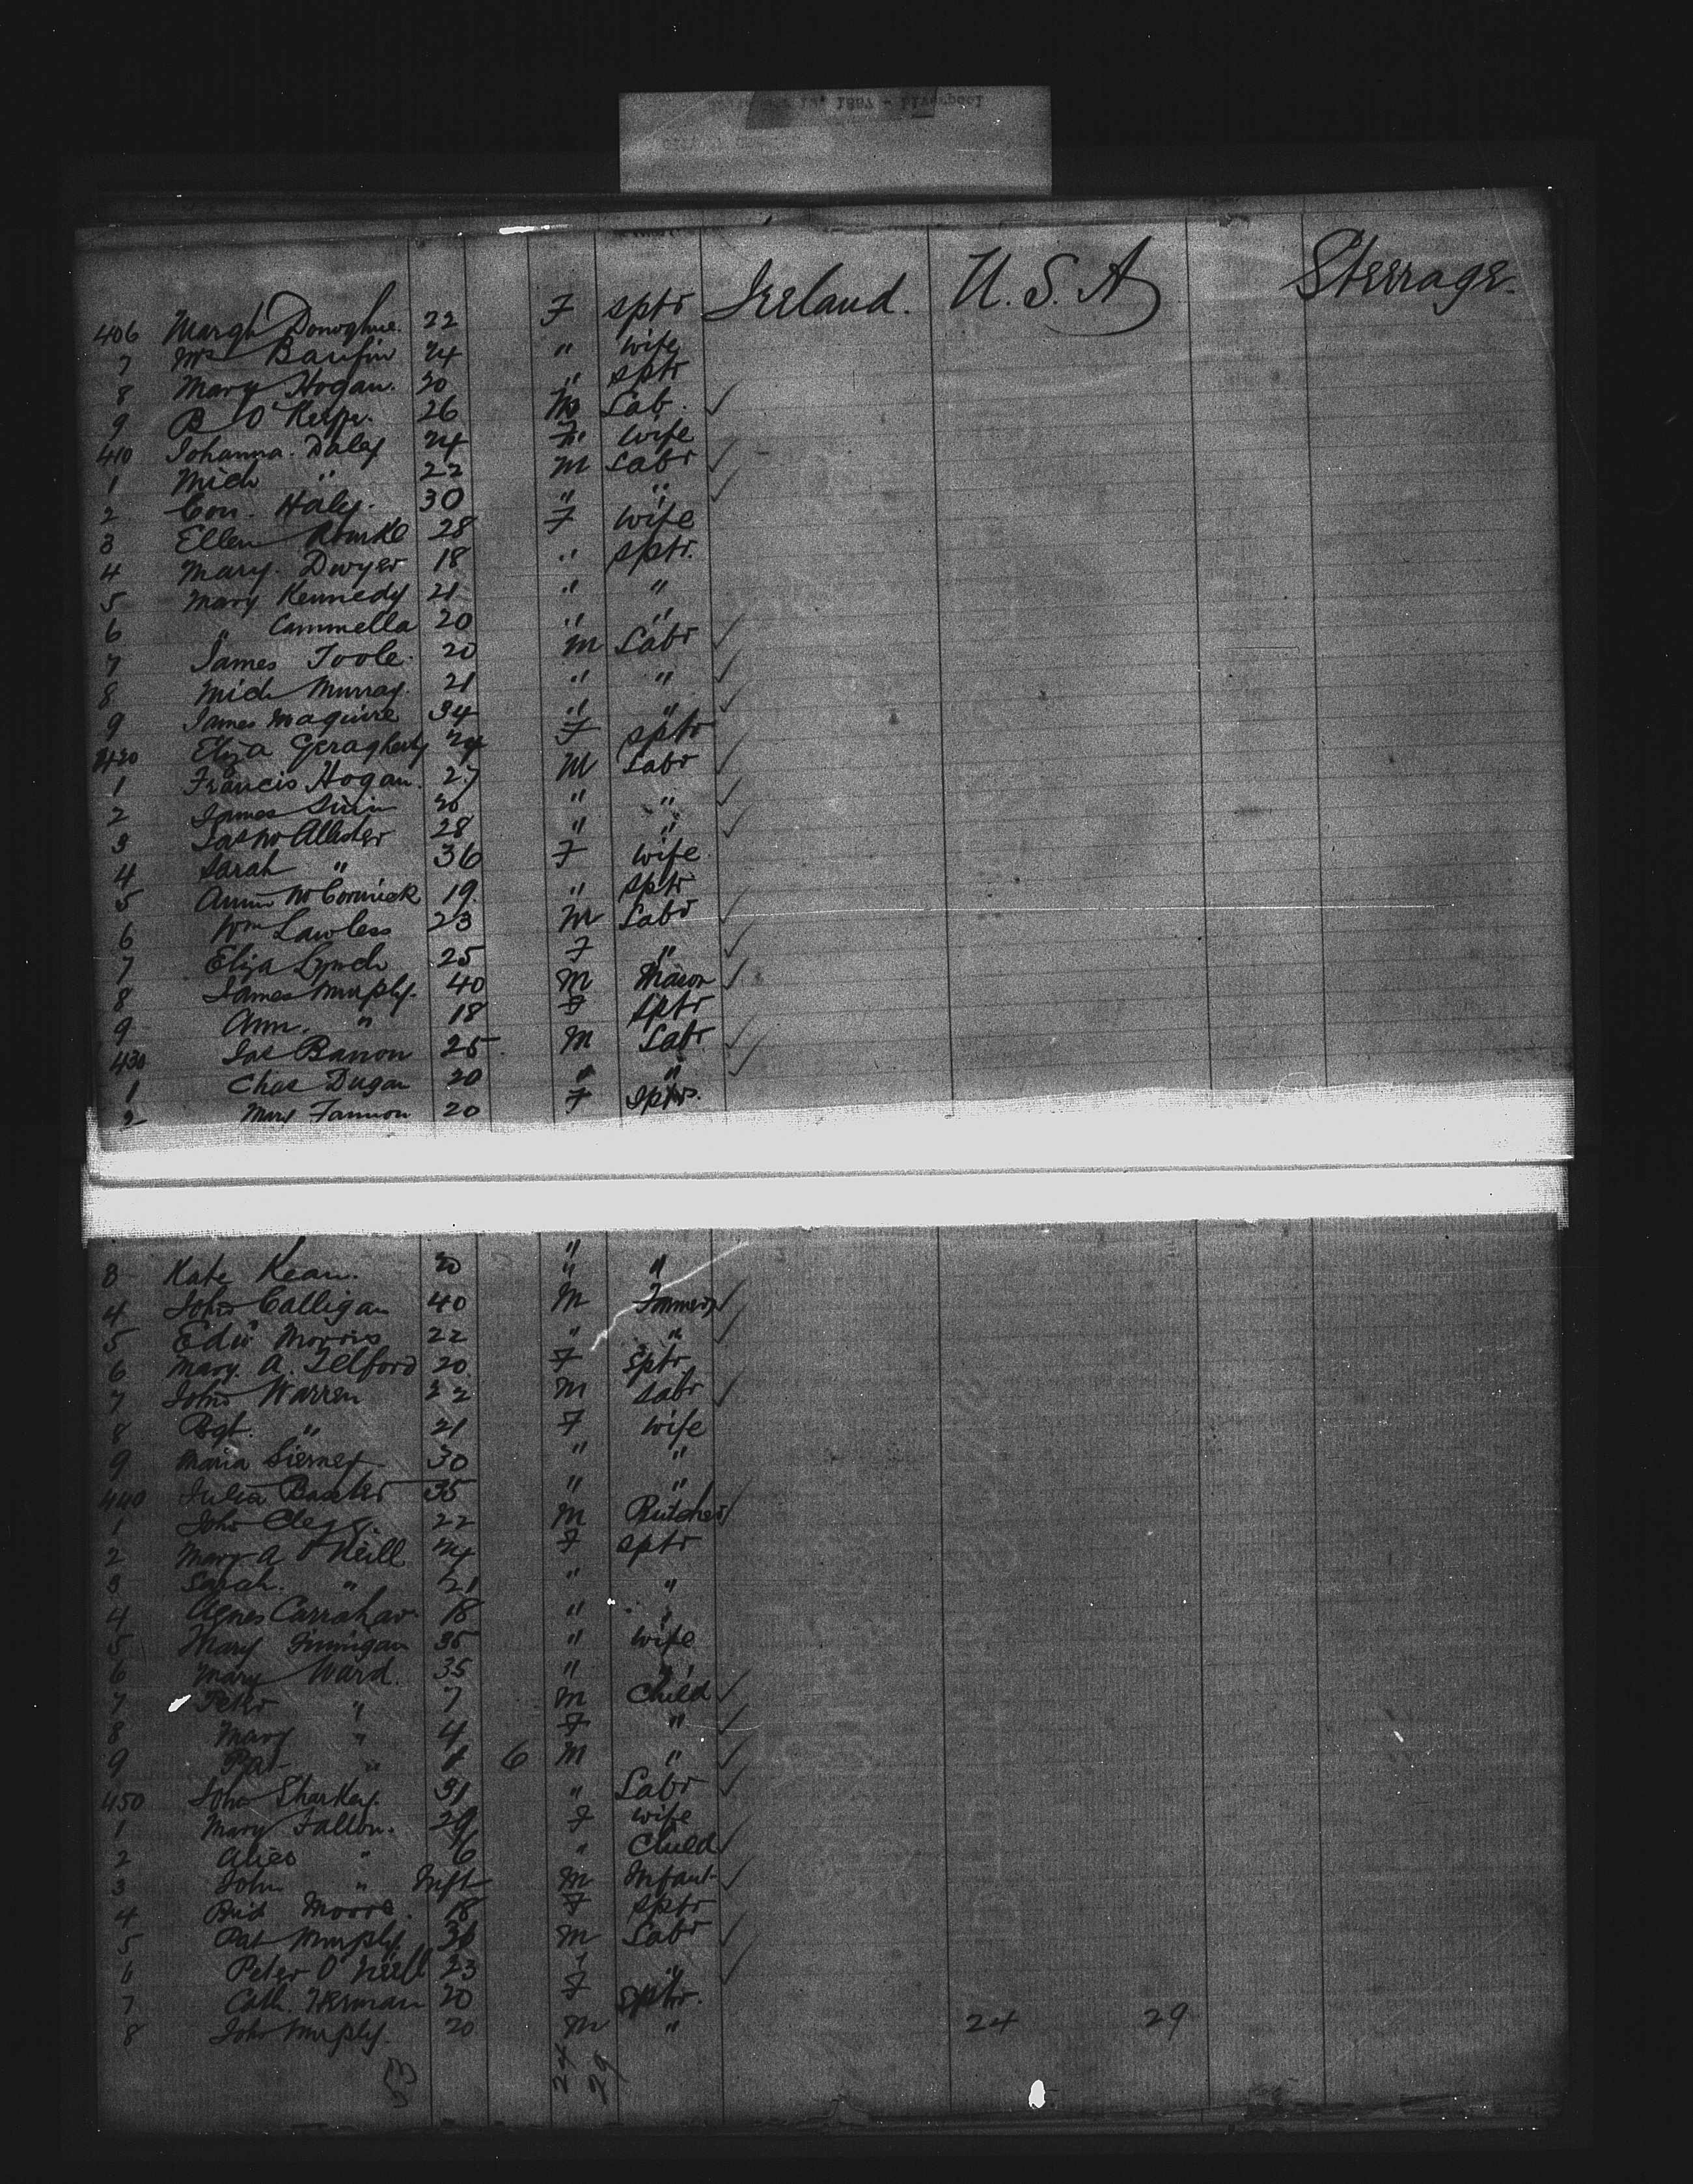 Ireland. U.S.A Steerage.
406 Margt Donoghue. 22 F sptr
7 Mrs 24 " wife
8 Mary Hogan. 20 " sptr
9 B O'Keefe. 26 M Lab. ✓
410 Johanna. Daley 24 F. wife
1 Mich " 22 M Labr ✓
2 Con. Haley. 30 " " ✓
3 Ellen Rourke 28 F wife
4 Mary. Dwyer 18 " sptr.
5 Mary Kennedy 21 " "
6 " Cammella 20 " "
7 James Toole. 20 M Labr ✓
8 Mich Murray. 21 " " ✓
9 James Maguire 34 " " ✓
420 Eliza Geraghty 24 F sptr
1 Francis Hogan. 27 M Labr ✓
2 James 20 " " ✓
3 Jas McAllister 28 " " ✓
4 Sarah " 36 F wife
5 Annie McCormick 19. " sptr
6 Wm Lawless 23 M Labr ✓
7 Eliza Lynch 25 F " ✓
8 James Murphy. 40 M Mason ✓
9 Ann. " 18 F sptr
430 Jas Barron 25 M Labr ✓
1 Chas Dugan 20 " " ✓
2 Mary Fannon 20 F Sptr.
"
3 Kate Kean. 20 " "
4 John Calligan 40 M ✓
5 Edwd Morris 22 " " ✓
6 Mary. A. Telford 20. F Sptr
7 John Warren 22 M Labr ✓
8 Bgt. " 21 F wife
9 Maria Tierney 30 " "
440 Julia Baxter 35 " "
1 John Clegg. 22 M Butcher ✓
2 Mary A O'Neill 24 F sptr
3 Sarah. " 21 " "
4 Agnes Carrahar. 18 " "
5 Mary Finnigan 35 " wife
6 Mary Ward. 35 " "
7 Peter " 7 M Child ✓
8 Mary " 4 F " ✓
9 Pat " 1 6 M " ✓
450 John Sharkey. 31 " Labr ✓
1 Mary Fallon. 29 F wife
2 Alice " 6 " Child ✓
3 John " Inft M Infant ✓
4 Brid Moore. 18 F sptr
5 Pat Murphy 36 M Labr ✓
6 Peter O'Neill 23 " " ✓
7 Cath. 20 F Sptr.
8 John Murphy. 20 M " 24 29
53 24 29